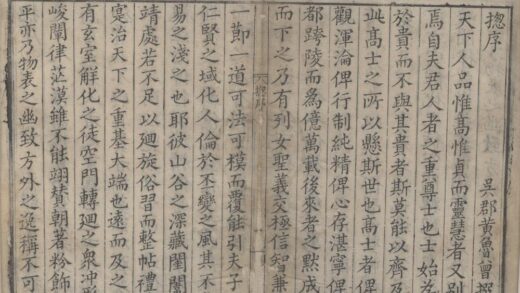 揔序
吳郡黃魯曾撰
天下人品惟高惟貞而靈慧者又别
焉自夫君人者之重尊士也士始為
於貴而不與其貴者斯莫能以齊及
此高士之所以懸斯世也高士者俾
觀渾淪俾行制純精俾心存湛寧俾
都陵而為億萬載後來者之黙成
而下之乃有列女聖義交極信智兼
一節一道可法可模而覆能引夫子
仁賢之域化人倫於丕變之風其不
易之淺之也耶彼山谷之深藏閨闈
靖處若不足以廻旋俗習而整帖禮
寔治天下之重基大端也遠而及之
有玄室解化之徒空門轉廻之衆冲形
峻闡律茫漠錐不能翊贊朝著粉飾
平亦乃物表之幽致方外之逸稱不可